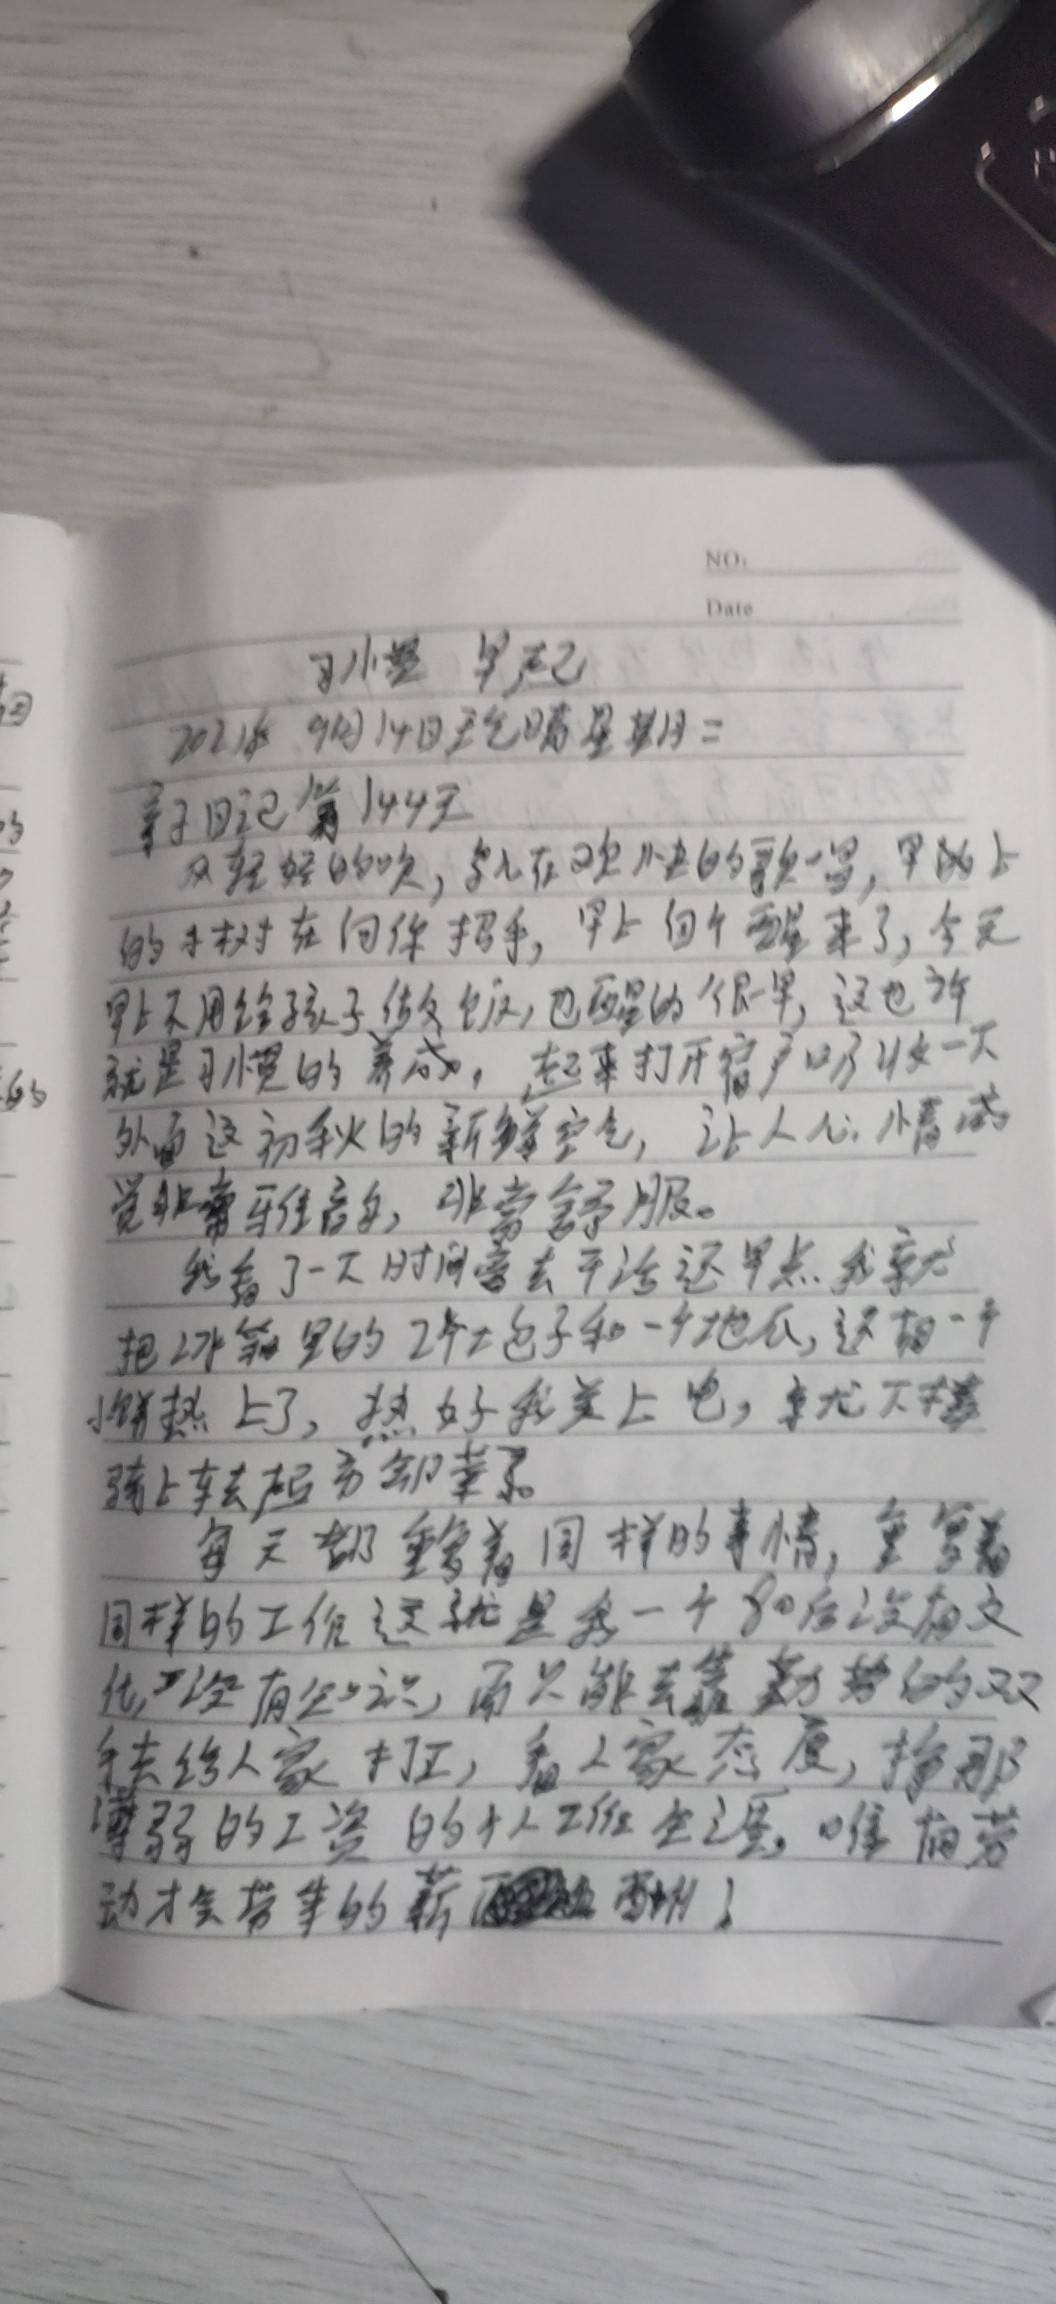 NO:
Date
习惯 早起
2021年 9月14日天气晴星期二
亲子日记第144天
风轻轻的吹,鸟儿在欢快的歌唱,早晨上
的小树在向你招手,早上 醒来了,今天
早上不用给孩子做饭,也醒的很早,这也许
就是习惯的养成,起来打开窗户呼吸一下
外面这初秋的新鲜空气,让人心情感
觉非常 ,非常舒服。
我看了一下时间 去干活还早点我就
把冰箱里的2个大包子和一个地瓜,还有一个
小饼热上了,热好我关上电,就下楼
骑上车去 卸菜了。
每天都重复着同样的事情,重复着
同样的工作这就是我一个80后没有文
化,没有知识,而只能去靠勤劳的双
手去给人家打工,看人家态度,挣那
薄弱的工资的个人工作生涯。唯有劳
动才会带来的薪 酬!
的
的